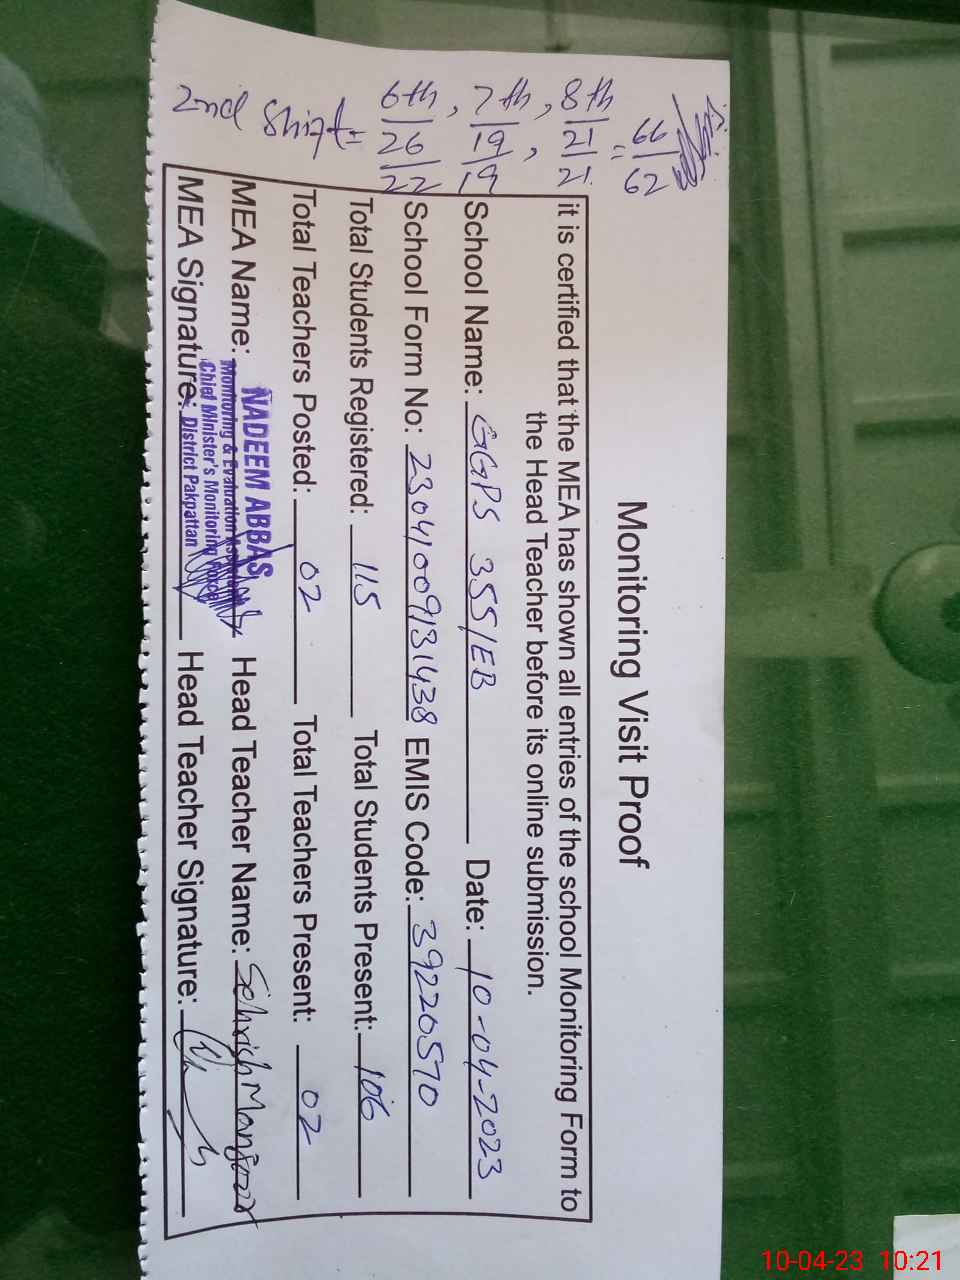 Monitoring Visit Proof
it is certified that the MEA has shown all entries of the school Monitoring Form to
the Head Teacher before its online submission.
School Name: GGPS 355/EB Date: 10-04-2023
School Form No: 23041009131438 EMIS Code: 39220570
Total Students Registered: 115 Total Students Present: 106
Total Teachers Posted: 02 Total Teachers Present: 02
MEA Name: NADEEM ABBAS Head Teacher Name: Sehrish Manzoor
Monitoring & Evaluation
MEA Signature: Head Teacher Signature:
Chief Minister's Monitoring Force
District Pakpattan
2nd Shift = 6th/26/22, 7th/19/19, 8th/21/21 = 66/62
10-04-23 10:21